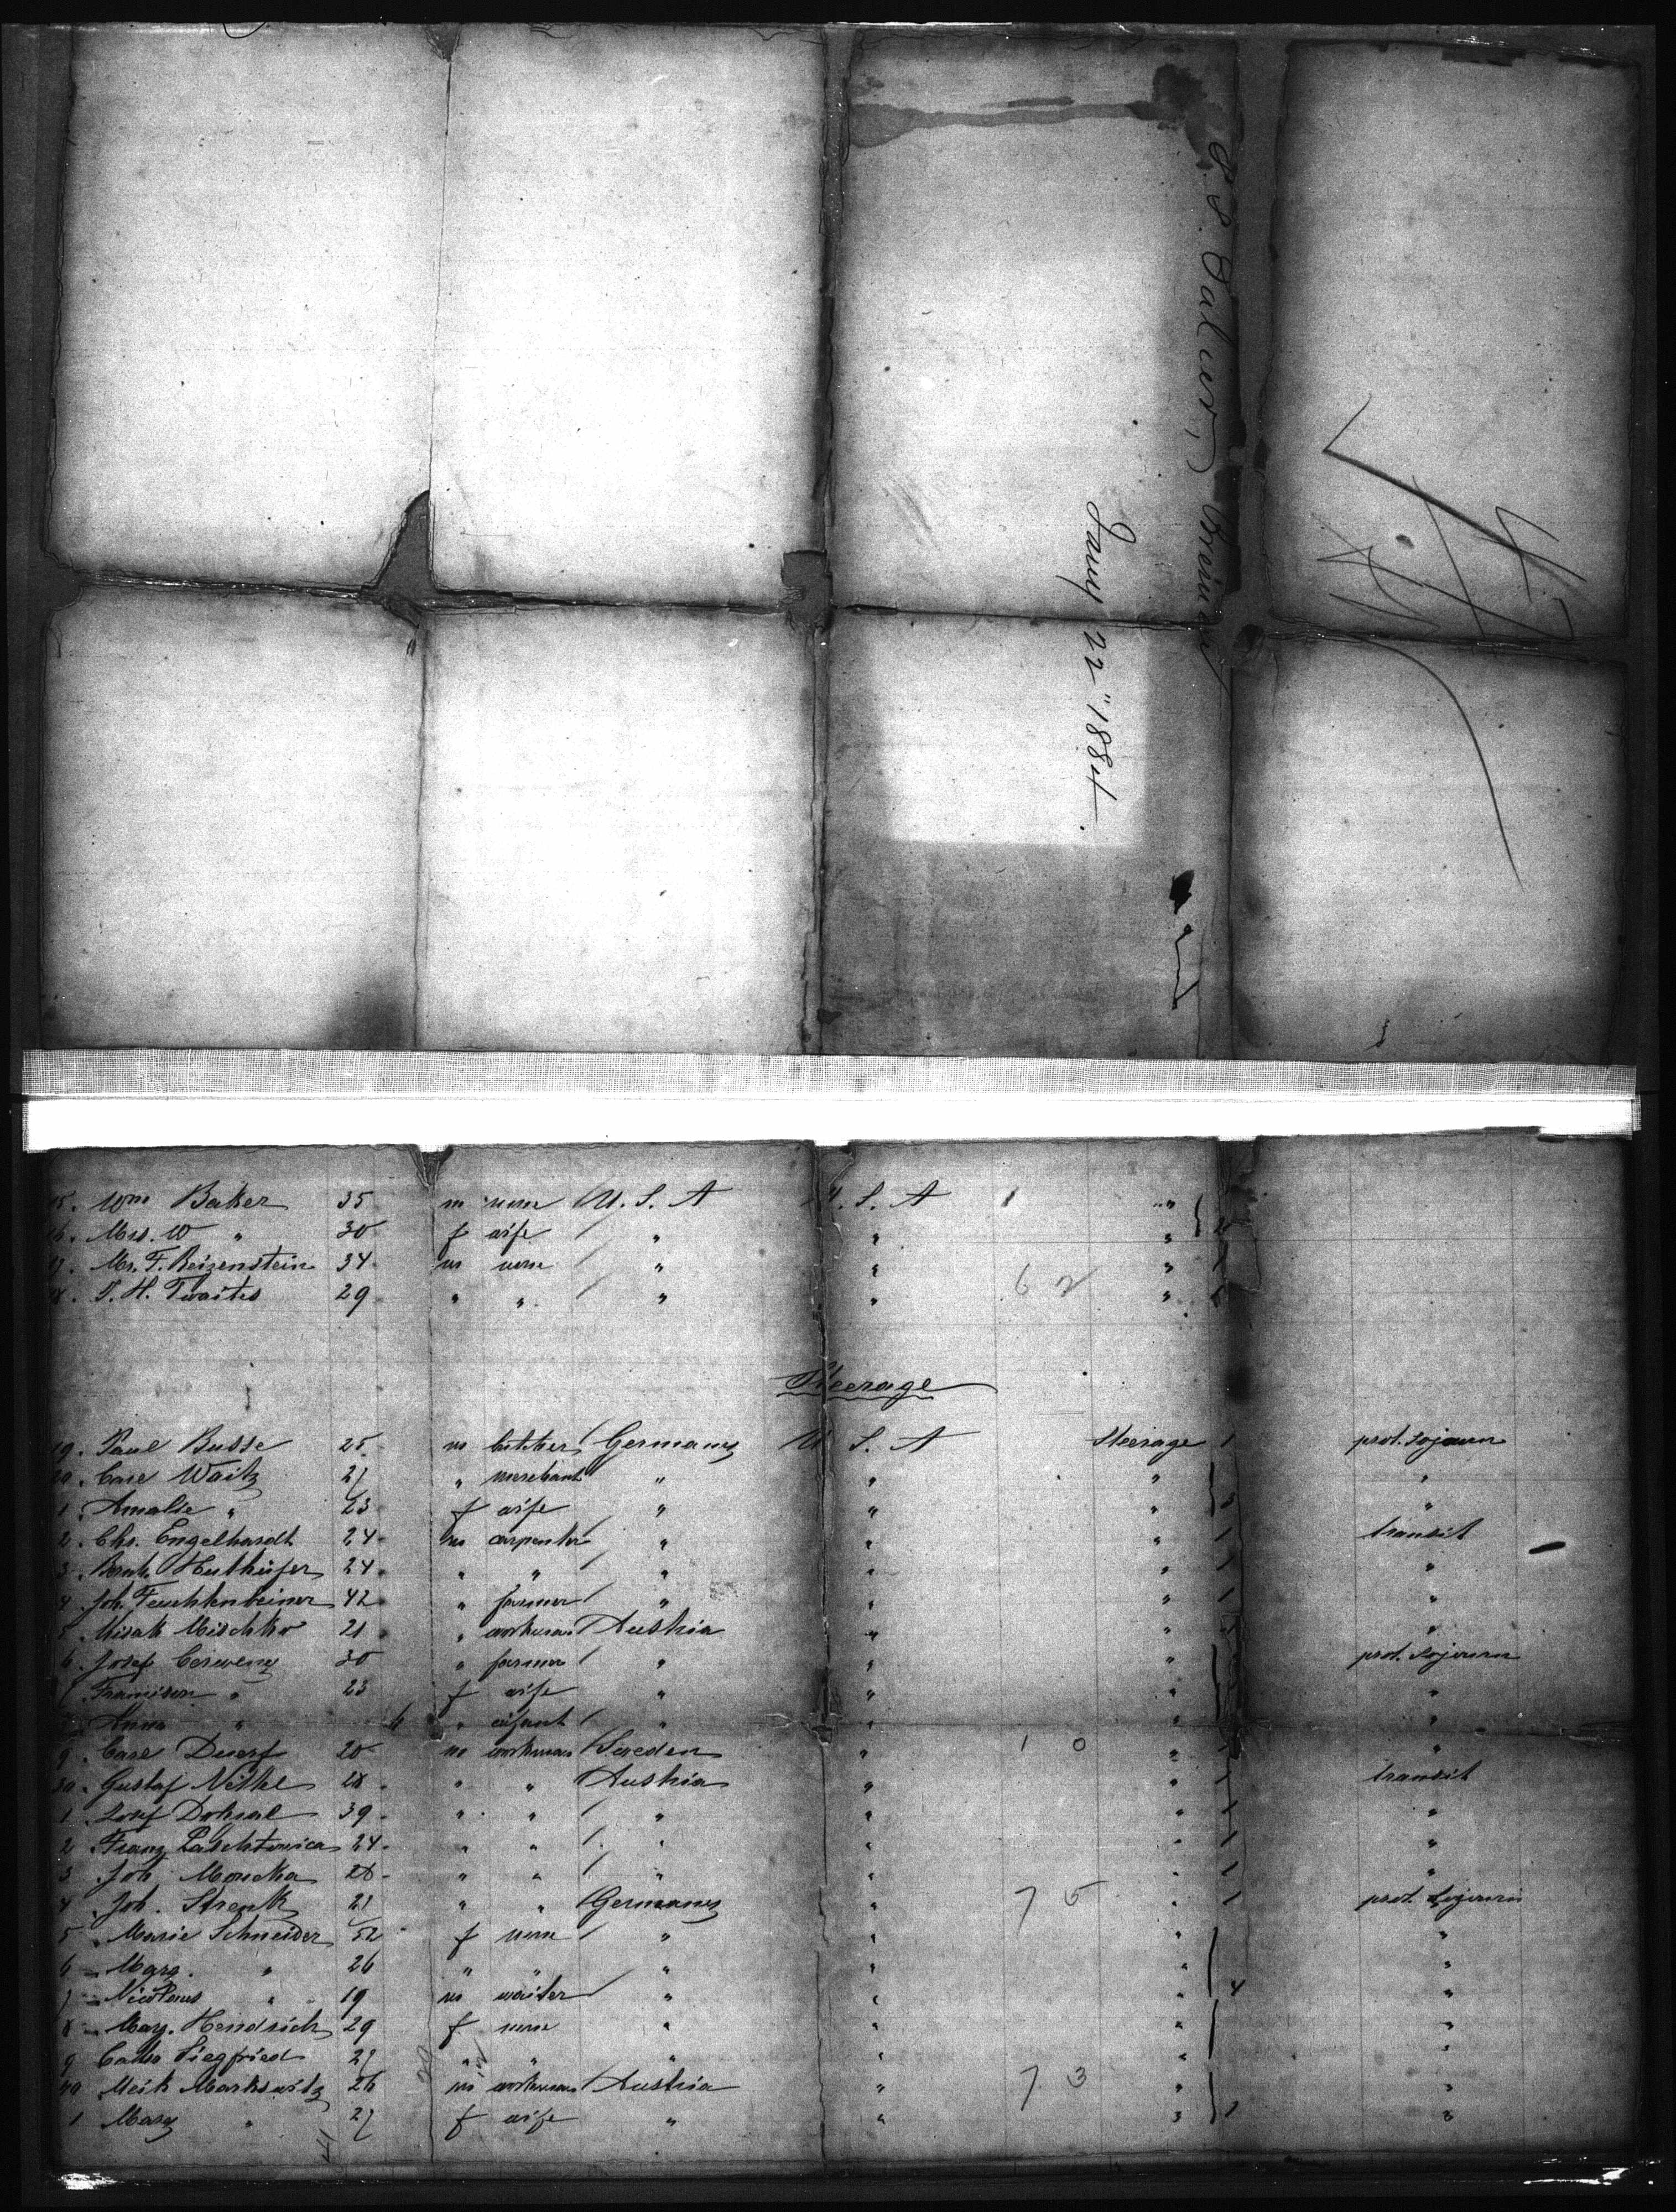 S. S. Salier, Bremen
Jany 22" 1884.
47
15. Wm Baker 35 m none U. S. A U. S. A "
16. Mrs. W " 30 f wife " " " 2
17. Mr. F. Reizenstein 34 m none " " "
18. T. H. Twaites 29 " " " " "
62
Steerage
19. Paul Busse 25 m butcher Germany U. S. A Steerage 1 prot. sojourn
20. Carl Waitz 27 " merchant " " " "
1. Amalie " 23 f wife " " " "
2. Chs. Engelhardt 24 m carpenter " " " 1 transit
3. Bernh. Huthöfer 24 " " " " " 1 "
4. Joh. 42 " farmer " " " 1 "
5. Misak Mischko 21 " workman Austria " " "
6. Josef Cerweny 30 " farmer " " " prot. sojourn
7. " 23 f wife " " " "
8. Anna " " infant " " " "
9. Carl 20 m workman Sweden " 10 " "
30. Gustaf Nethel 28 " " Austria " " 1 transit
1. Josef Dohsal 39 " " " " " 1 "
2. Franz 24 " " " " " 1 "
3. Joh. Moucka 28 " " " " " 1 "
4. Joh. Strenk 21 " " Germany " 75 " 1 prot. sojourn
5. Marie Schneider 52 f none " " " "
6 Marg. " 26 " " " " " "
7 Nicolaus " 19 m waiter " " " 4 "
8 Marg. Hendrich 29 f none " " " "
9 Siegfried 27 " " " " " "
40 Meik Markowitz 26 m workman Austria " 73 " "
1 Mary " 27 f wife " " " "